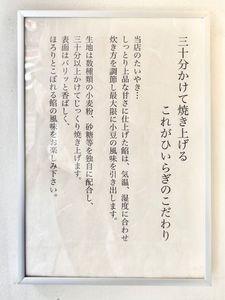 三十分かけて焼き上げる
これがひいらぎのこだわり
当店のたいやき…
しっとり上品な甘さに仕上げた餡は、気温、湿度に合わせ
炊き方を調節し最大限に小豆の風味を引き出します。
生地は数種類の小麦粉、砂糖等を独自に配合し、
三十分以上かけてじっくり焼き上げます。
表面はパリッと香ばしく、
ほろりとこぼれる餡の風味をお楽しみ下さい。